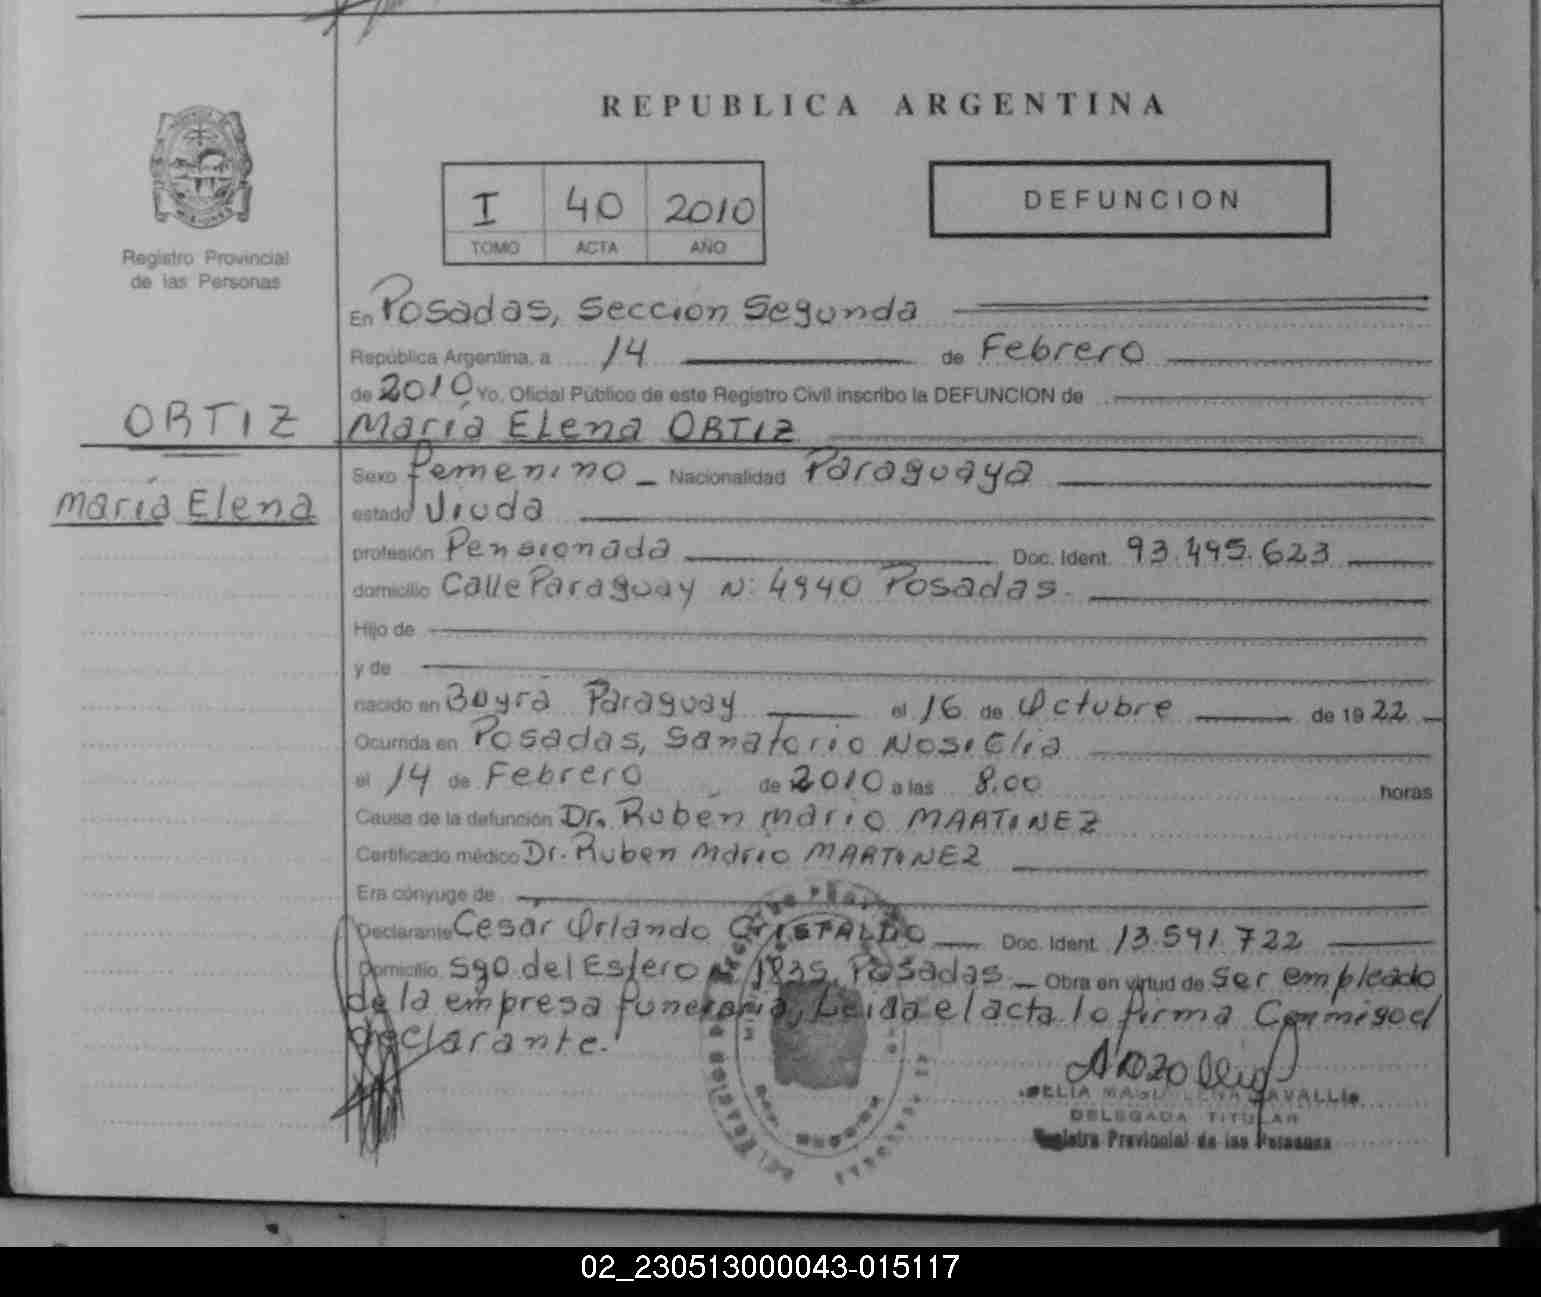 REPUBLICA ARGENTINA
I 40 2010
TOMO ACTA AÑO
DEFUNCION
Registro Provincial
de las Personas
En Posadas, Sección Segunda
República Argentina, a 14 de Febrero
de 2010 Yo, Oficial Público de este Registro Civil inscribo la DEFUNCION de
ORTIZ
María Elena ORTIZ
María Elena
Sexo Femenino Nacionalidad Paraguaya
estado Viuda
profesión Pensionada Doc. Ident. 93.495.623
domicilio Calle Paraguay N: 4940 Posadas.
Hijo de
y de
nacido en Boyra Paraguay el 16 de Octubre de 1922
Ocurrida en Posadas, Sanatorio Nosiglia
el 14 de Febrero de 2010 a las 8.00 horas
Causa de la defunción Dr. Rubén Mario MARTINEZ
Certificado médico Dr. Ruben Mario MARTINEZ
Era cónyuge de
Declarante Cesar Orlando CRISTALDO Doc. Ident. 13.591.722
Domicilio Sgo. del Estero 1835, Posadas Obra en virtud de Ser empleado
de la empresa funeraria, Leida el acta lo firma Conmigo el
declarante.
DELEGADA TITULAR
Registro Provincial de las Personas
02_230513000043-015117